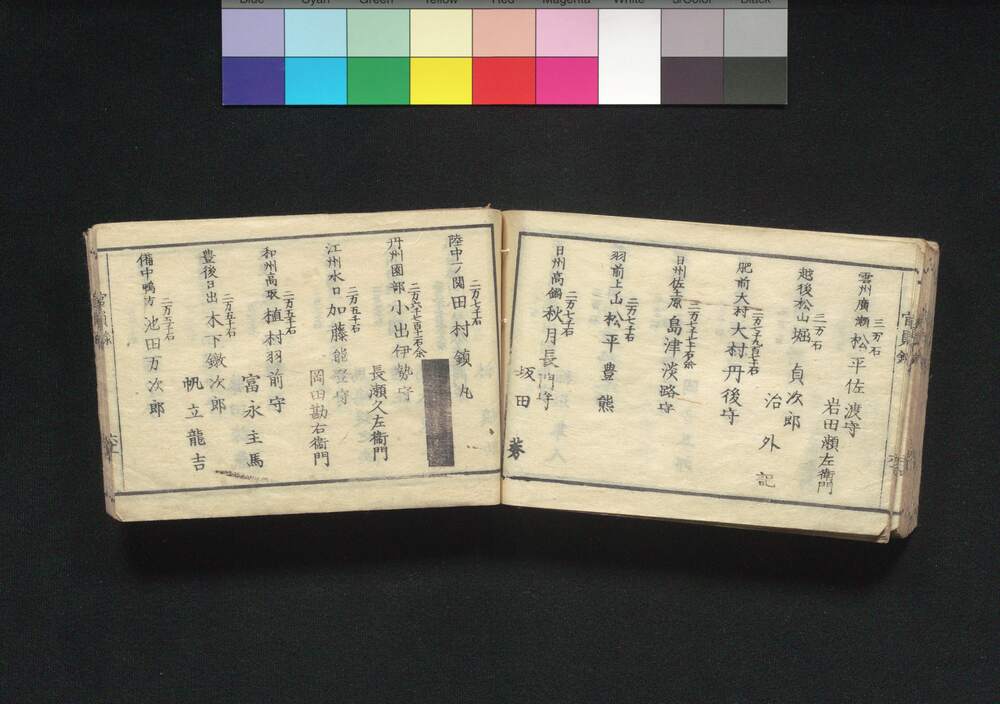 Blue Cyan Green Yellow Red Magenta White 3/Color Black
三万石
雲州廣瀬 松平佐渡守
岩田瀬左衛門
三万石
越後松山 堀貞次郎
治外記
二万七千九百七十石
肥前大村 大村丹後守
二万七千七十石余
日州佐土原 島津淡路守
二万七千石
羽前上山 松平豊熊
二万七千石
日州高鍋 秋月長門守
坂田莠
二万七千石
陸中一ノ関 田村鎮丸
二万六千七百十一石余
丹州園部 小出伊勢守
長瀬久左衛門
二万五千石
江州水口 加藤能登守
岡田勘右衛門
二万五千石
和州高取 植村羽前守
富永主馬
二万五千石
豊後日出 木下鐓次郎
帆立龍吉
二万五千石
備中鴨方 池田万次郎
官員録